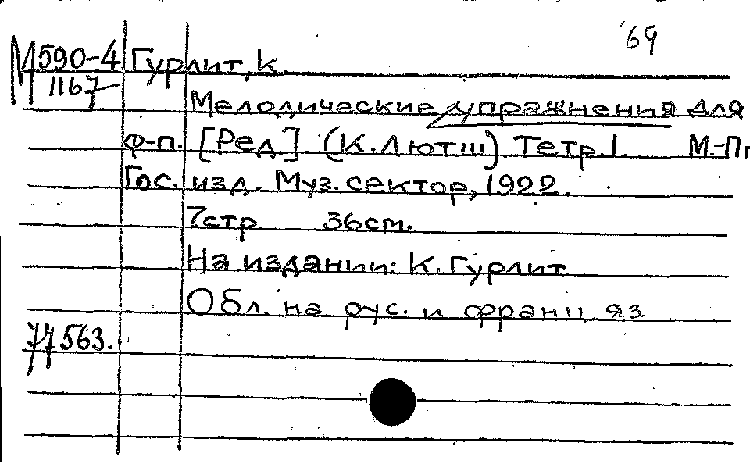 69
М590-4 Гурлит, К
1167
Мелодические упражнения для
ф-п. [Ред] (К. Лютш) Тетр 1. М.-Пг
Гос. изд. Муз. сектор, 1922.
7стр 36см.
На издании: К. Гурлит
Обл. на рус. и франц яз
77563.